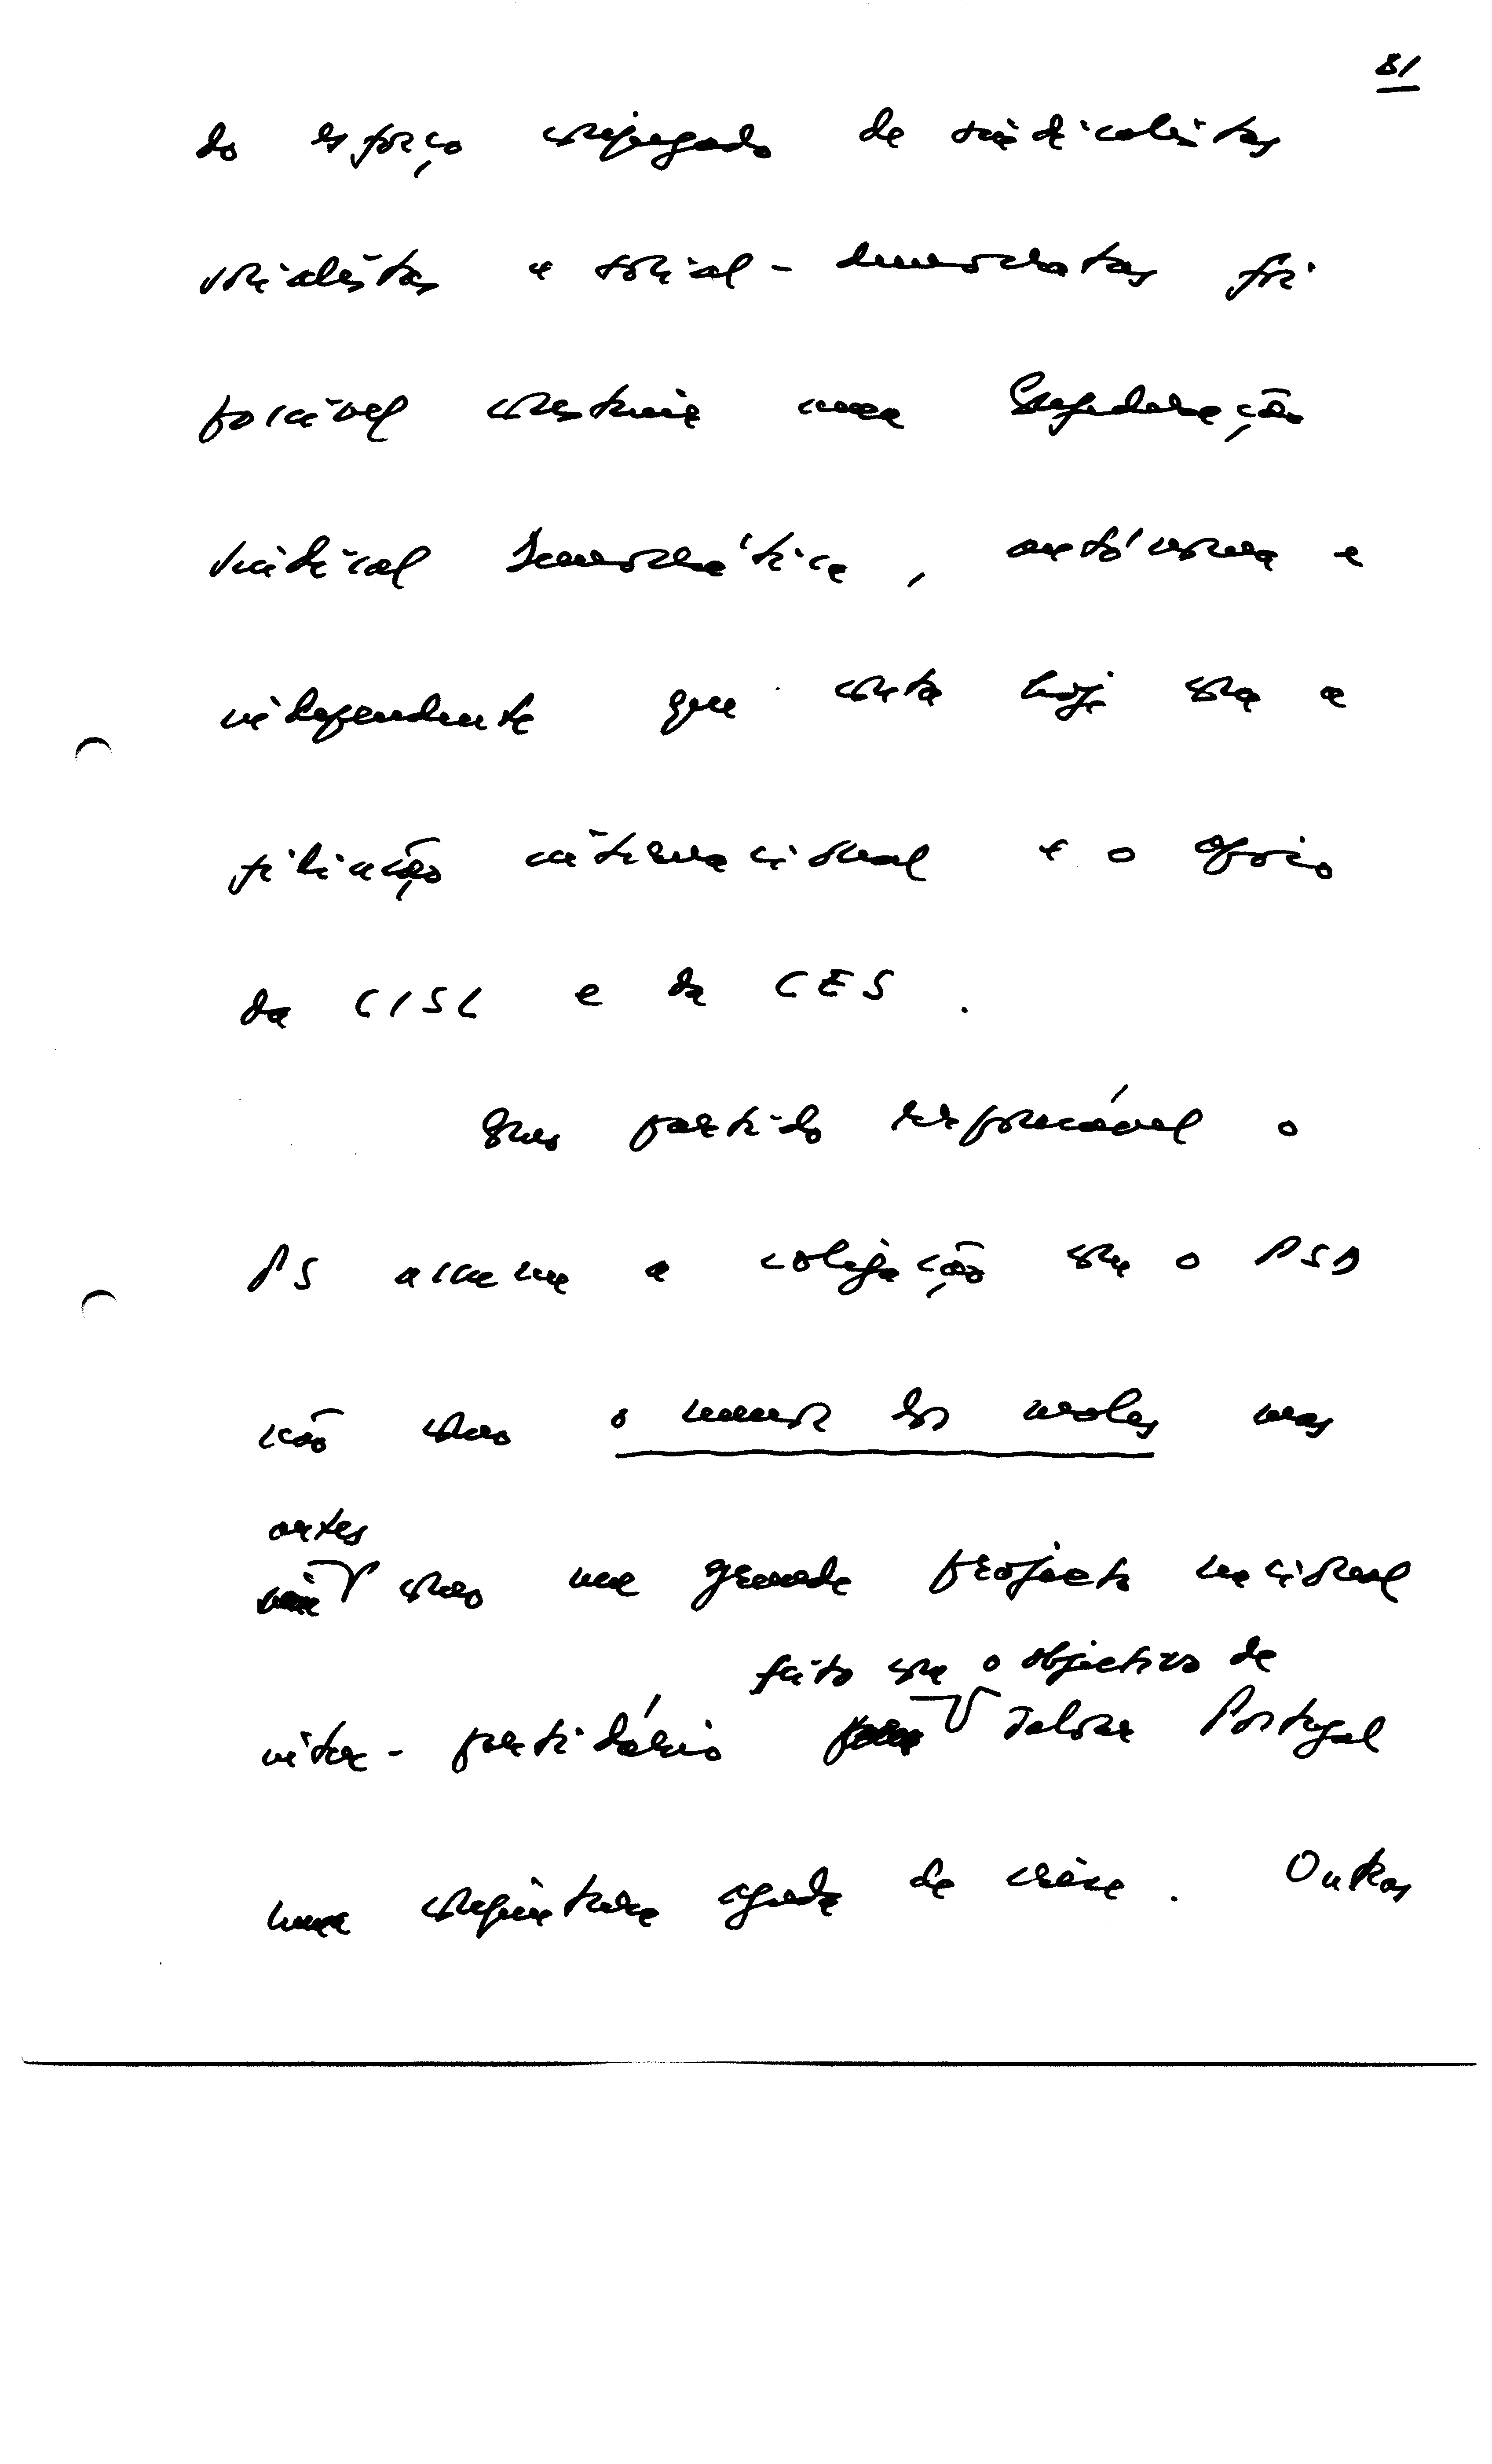 81
do esforço conjugado de sindicalistas
socialistas e social-democratas foi
possível construir uma Confederação
sindical democrática, autónoma e
independente que conta hoje com a
filiação internacional e o apoio
da CISL e da CES.
Como partido responsável o
PS assume a coligação com o PSD
não como o menor dos males mas
antes
como um grande projecto nacional
feito com o objectivo de
inter-partidário salvar Portugal
numa conjuntura aguda de crise. Outros